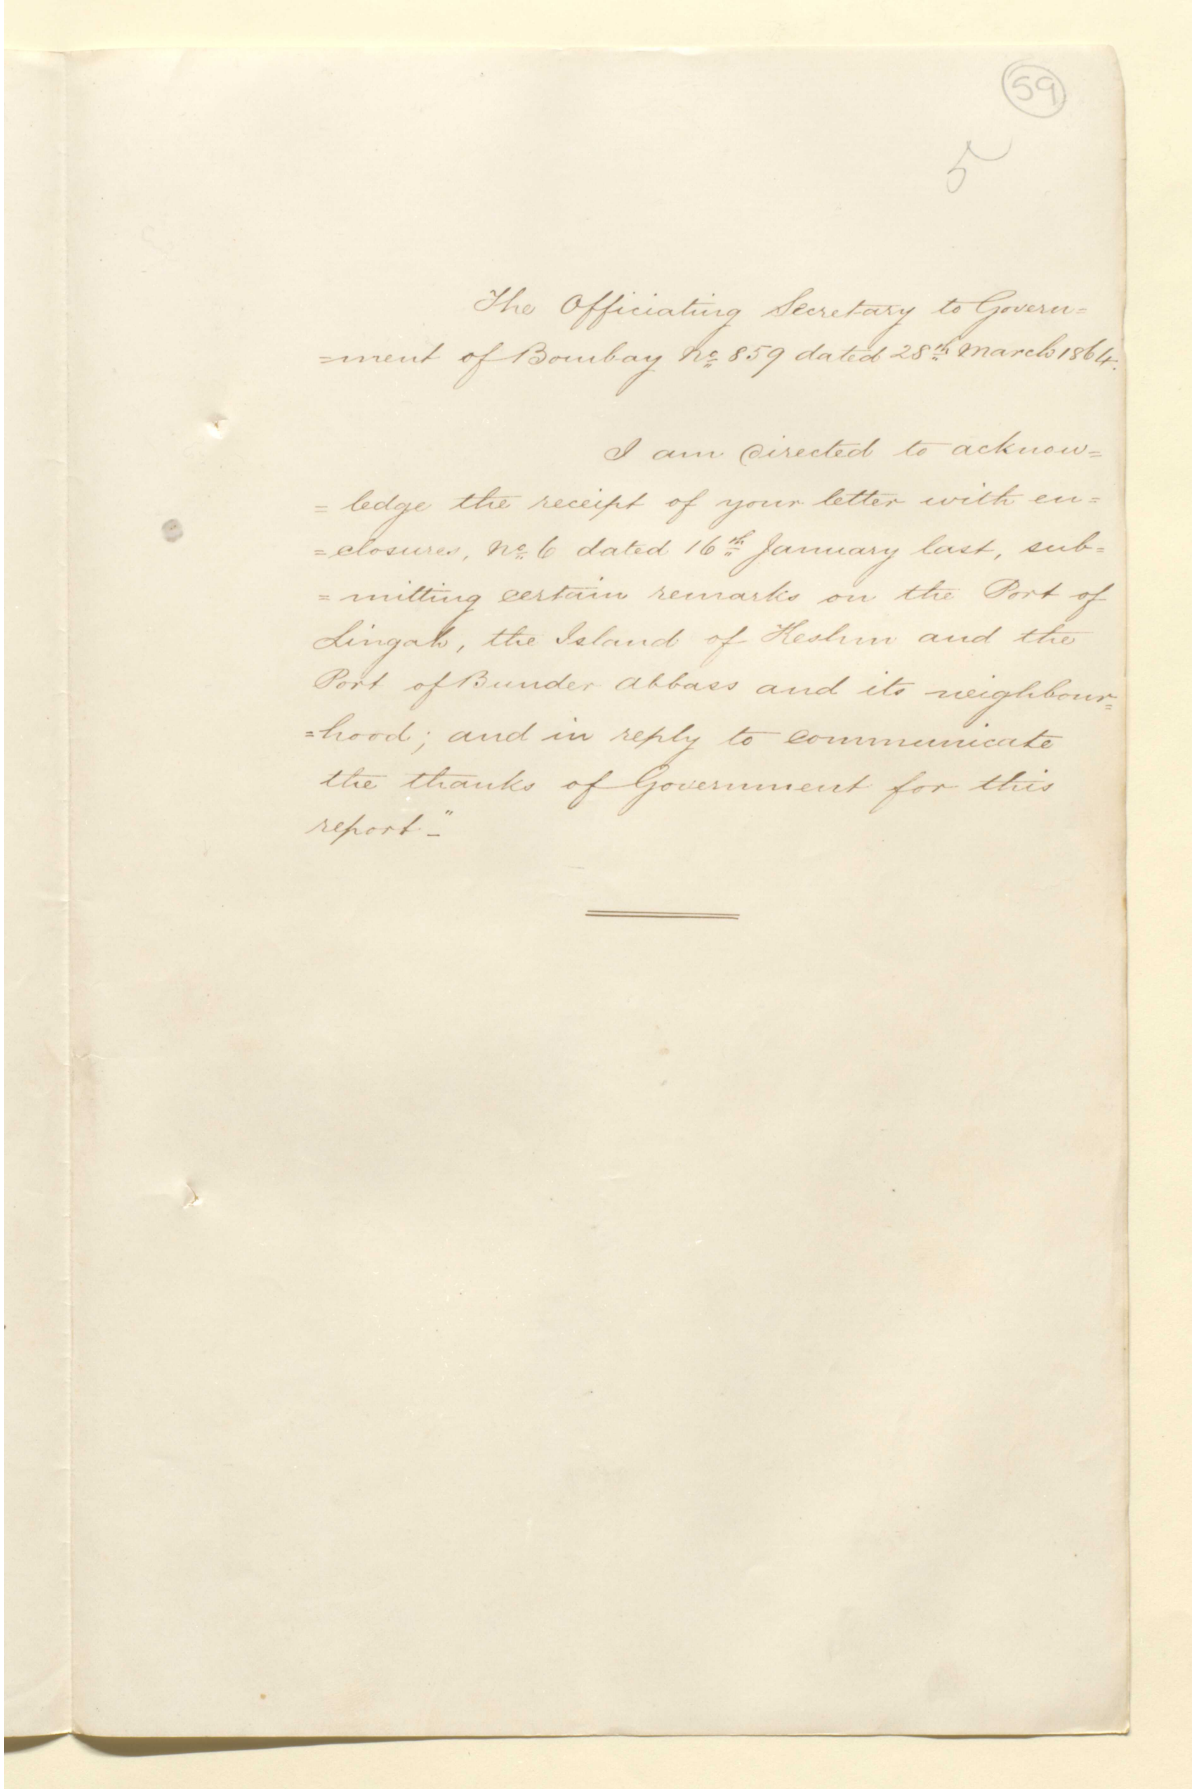 59
5
The Officiating Secretary to Govern=
=ment of Bombay No 859 dated 28th March 1864.
I am directed to acknow=
=ledge the receipt of your letter with en=
=closures, No 6 dated 16th January last, sub=
=mitting certain remarks on the Port of
Lingah, the Island of Keshm and the
Port of Bunder Abbass and its neighbour=
=hood; and in reply to communicate
the thanks of Government for this
report"